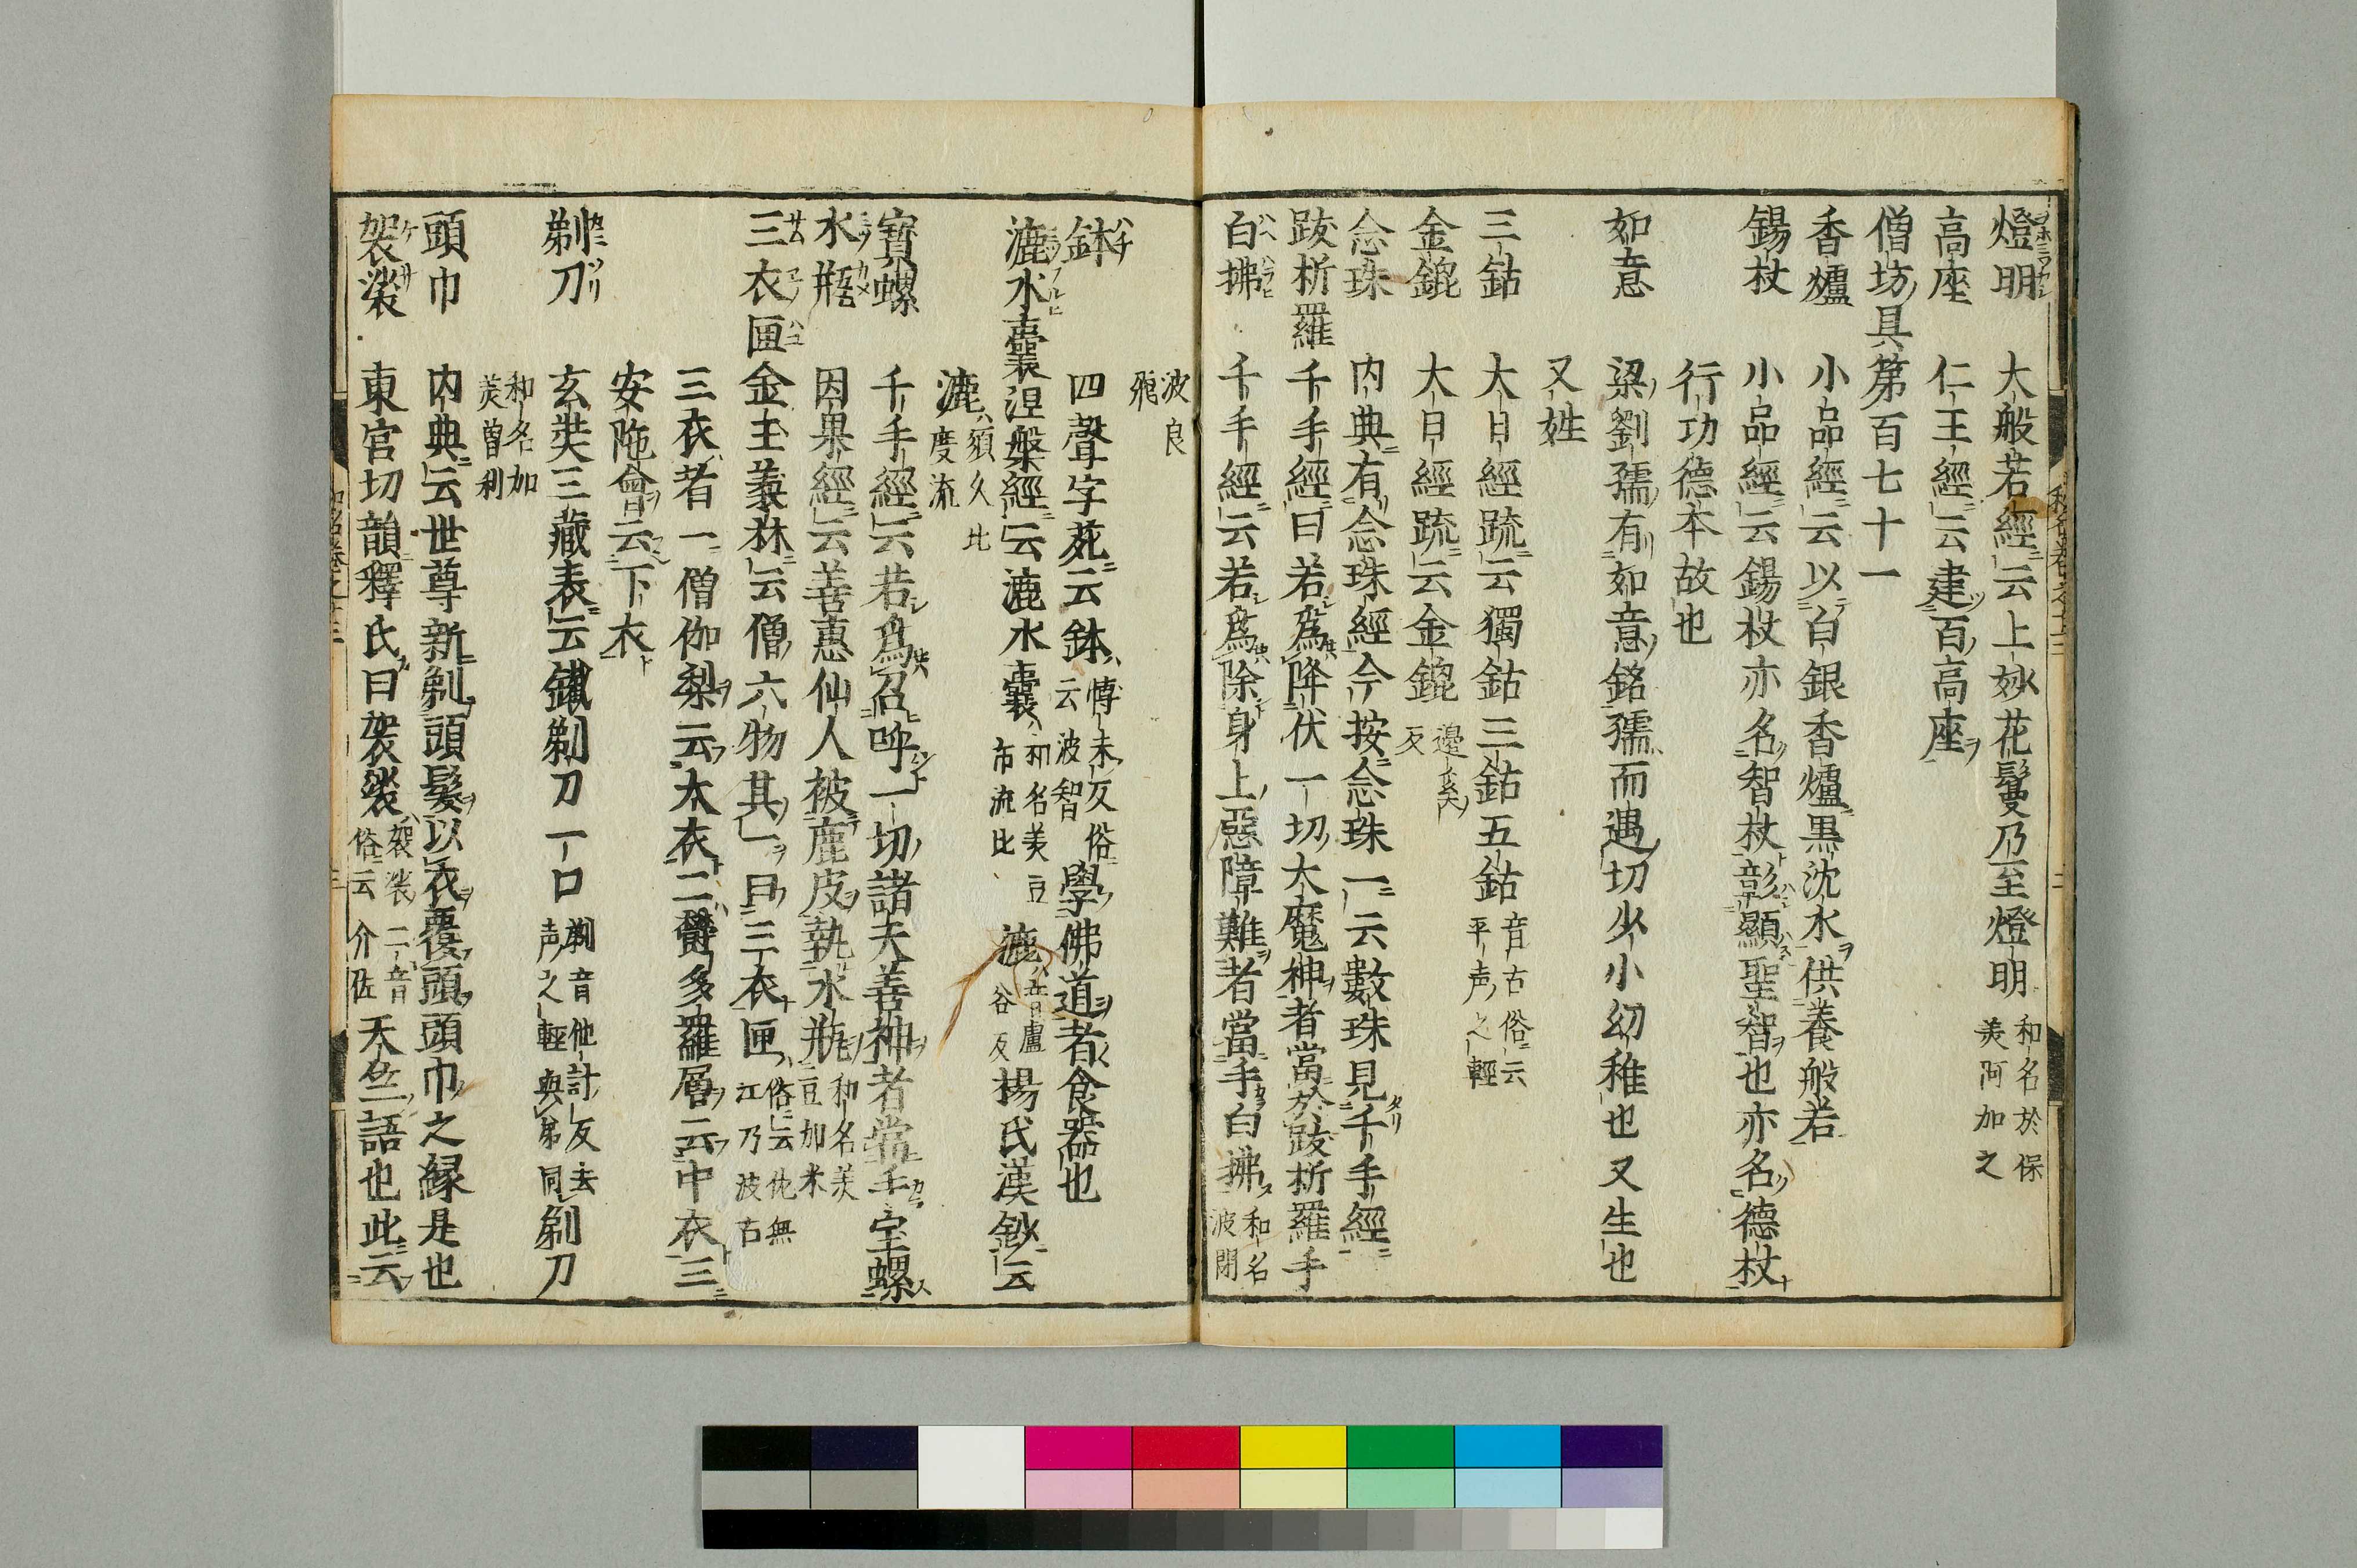 燈明 大般若經云上妙花鬘乃至燈明 和名於保美阿加之
高座 仁王經云建百高座
僧坊具第百七十一
香爐 小品經云以白銀香爐黒沈水供養般若
錫杖 小品經云錫杖亦名智杖彰顯聖智也亦名德杖
行功德本故也
如意 梁劉孺有如意銘孺而遇切少小幼稚也又生也
又姓
三鈷 大日經疏云獨鈷三鈷五鈷 音古俗云平声之輕
金錍 大日經疏云金錍 邊奚反
念珠 内典有念珠經今按念珠一云數珠見千手經
跋折羅 千手經曰若爲降伏一切大魔神者當於跋折羅手
白拂 千手經云若爲除身上惡障難者當手白拂 和名波閇
波良飛
鉢 四聲字苑云鉢 博末反俗云波智 學佛道者食器也
漉水囊 涅槃經云漉水囊 和名美豆布流比 漉 音盧谷反 楊氏漢鈔云
漉 須久比度流
寳螺 千手經云若爲召呼一切諸天善神者當手宝螺
水瓶 因果經云善惠仙人被鹿皮執水瓶 和名美豆加米
三衣匣 金主義林云僧六物其一曰三衣匣 俗云佐無江乃波古
三衣者一僧伽梨云大衣二欝多羅層云中衣三
安陁會云下衣
剃刀 玄奘三藏表云鐵剃刀一口 剃音他計反去声之輕與弟同 剃刀
和名加美曽利
頭巾 内典云世尊新剃頭髮以衣覆頭頭巾之縁是也
袈裟 東宮切韻釋氏曰袈裟 袈裟二音俗云介佐 天竺語也此云